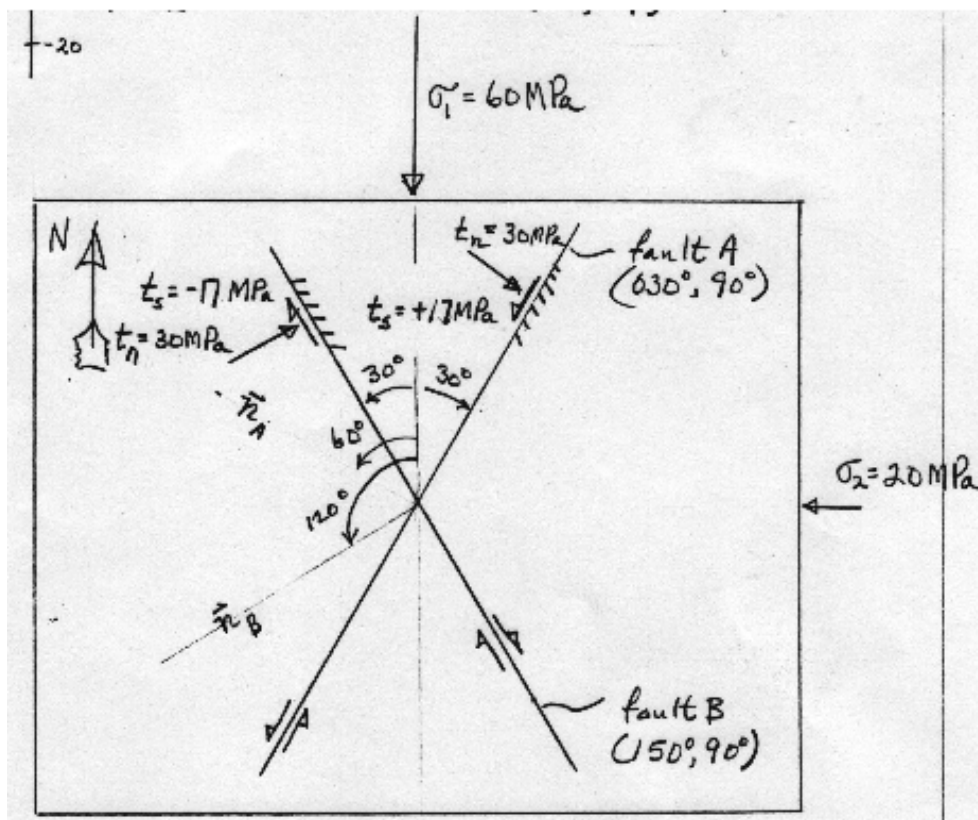 -20
σ₁ = 60 MPa
N
tₙ = 30 MPa
fault A
(030°, 90°)
tₛ = -17 MPa
tₛ = +17 MPa
tₙ = 30 MPa
30°
30°
n⃗_A
60°
120°
σ₂ = 20 MPa
n⃗_B
fault B
(150°, 90°)